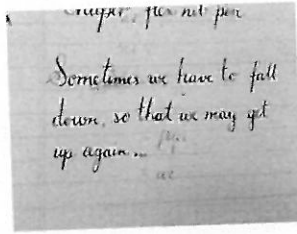 Sometimes we have to fall
down, so that we may get
up again...